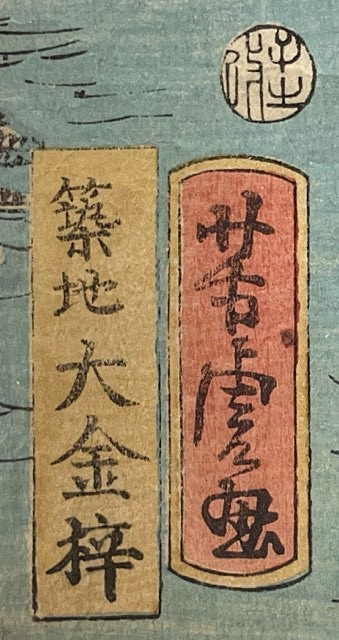 芳虎画
築地大金梓